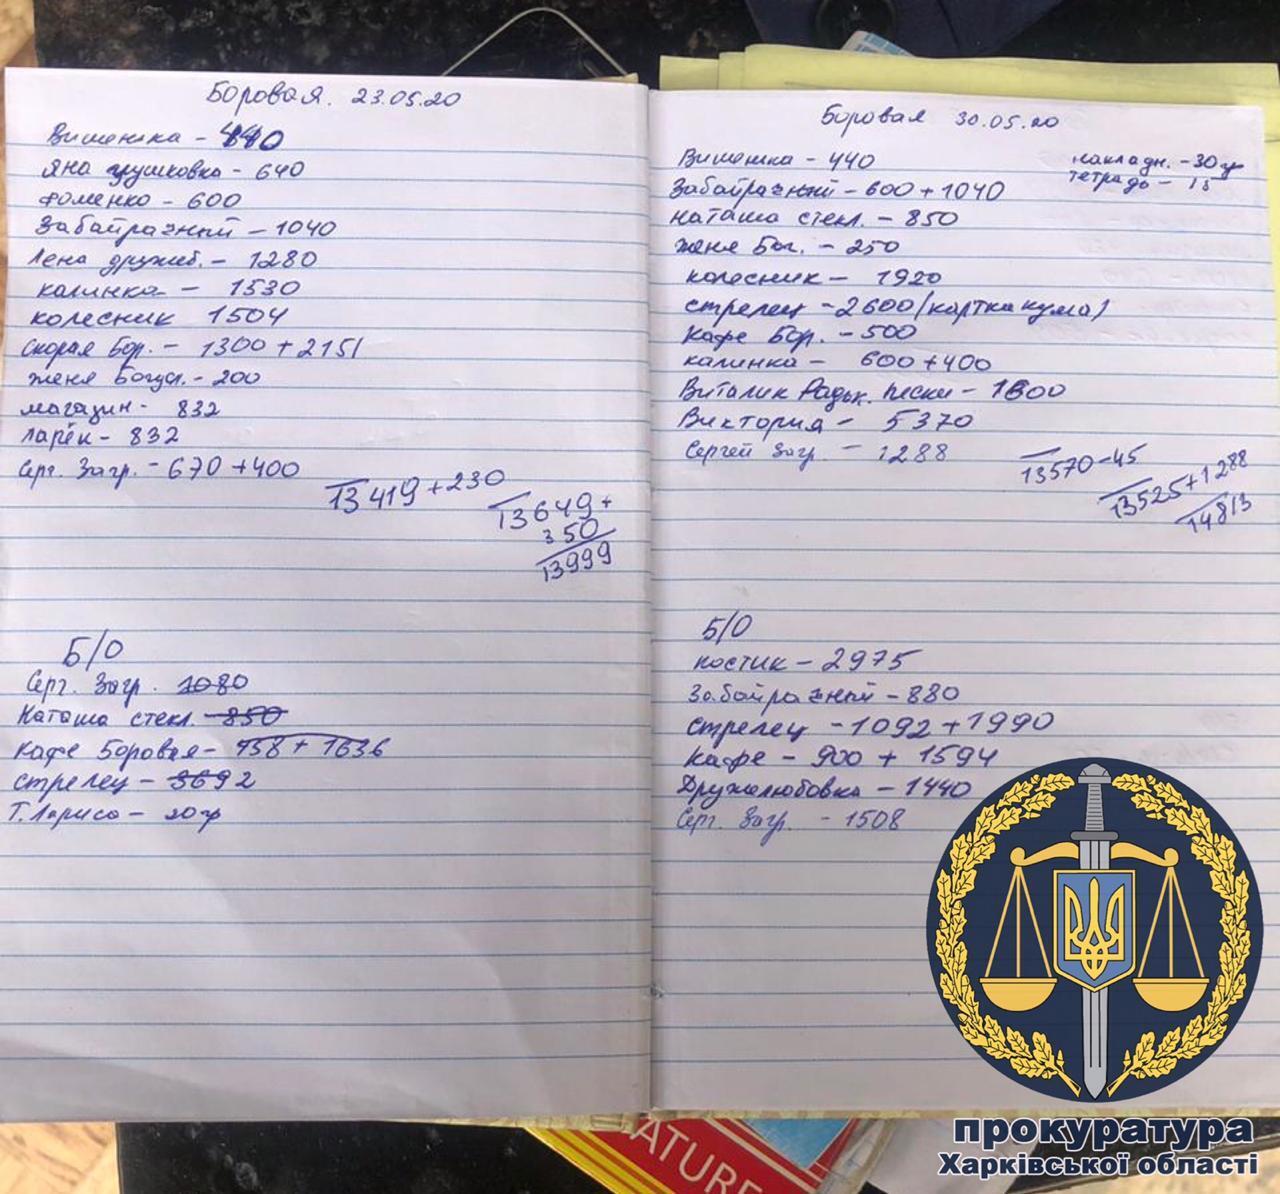 Боровая. 23.05.20
Вишенка - 440
Яна грушковка - 640
Фоменко - 600
Забайрачный - 1040
Лена дружиб. - 1280
калинка - 1530
колесник 1504
Скорая Бор. - 1300 + 2151
женя Богусл. - 200
магазин - 832
Ларёк - 832
Серг. Загр. - 670 + 400
13419 + 230
13649 +
350
13999
Б/О
Серг. Загр. 1080
Наташа стекл. - 850
кафе Боровая - 958 + 1636
стрелец - 3692
Т. Лариса - 20 гр
Боровая 30.05.20
накладн. - 30 гр
тетрадь - 15
Вишенка - 440
Забайрачный - 600 + 1040
наташа стекл. - 850
женя Бог. - 250
колесник - 1920
стрелец - 2600 (картка кума)
кафе Бор. - 500
калинка - 600 + 400
Виталик Радьк. пески -
Виктория - 5370
Сергей Загр. - 1288
13570 - 45
13525 + 1288
14813
Б/О
костик - 2975
Забайрачный - 880
стрелец - 1092 + 1990
кафе - 900 + 1594
Дружелюбовка - 1440
Серг. Загр. - 1508
прокуратура
Харківської області
ATURE